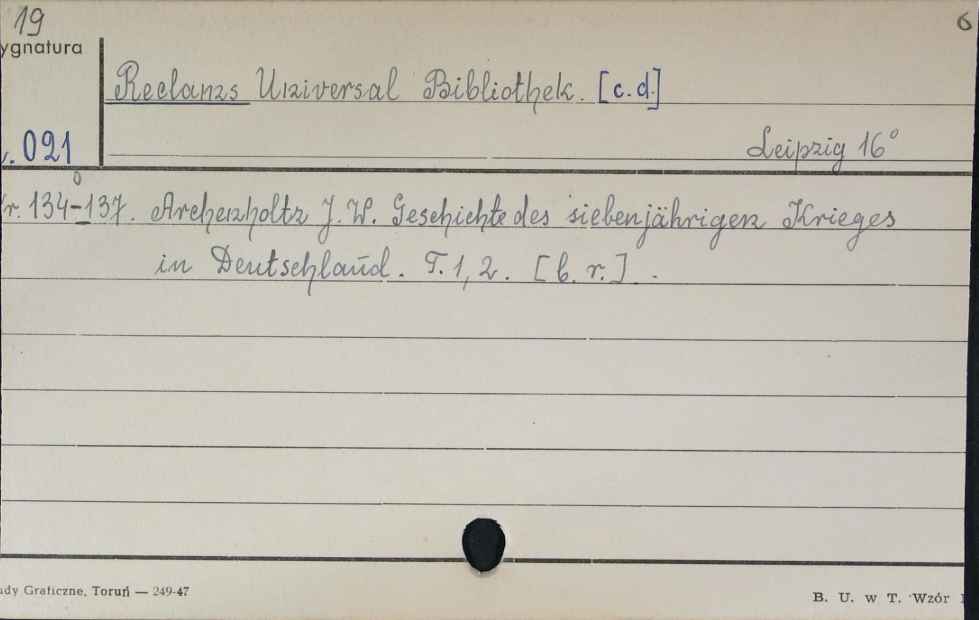 19
6
ygnatura
Reclams Universal Bibliothek. [c.d.]
. 021
Leipzig 16°
r. 134-137. Archenholtz J. W. Geschichte des siebenjährigen Krieges
in Deutschland. T. 1, 2. [b. r.] .
ady Graficzne, Toruń — 249-47
B. U. w T. Wzór